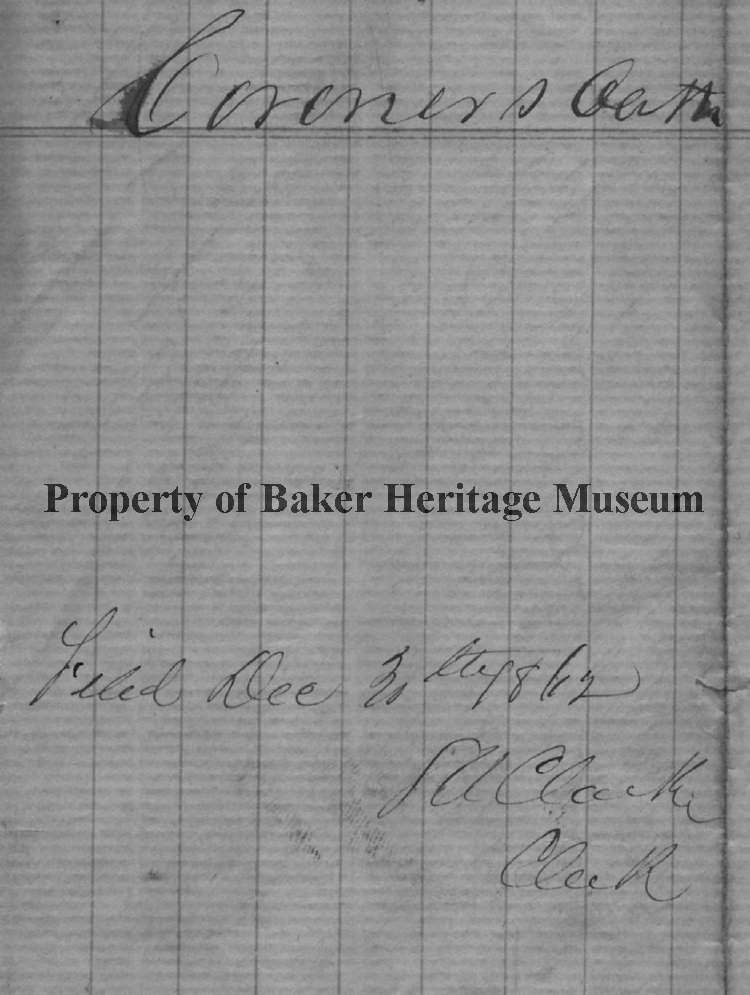 Coroners Oath
Property of Baker Heritage Museum
Filed Dec 30th 1862
S A Clarke
Clerk